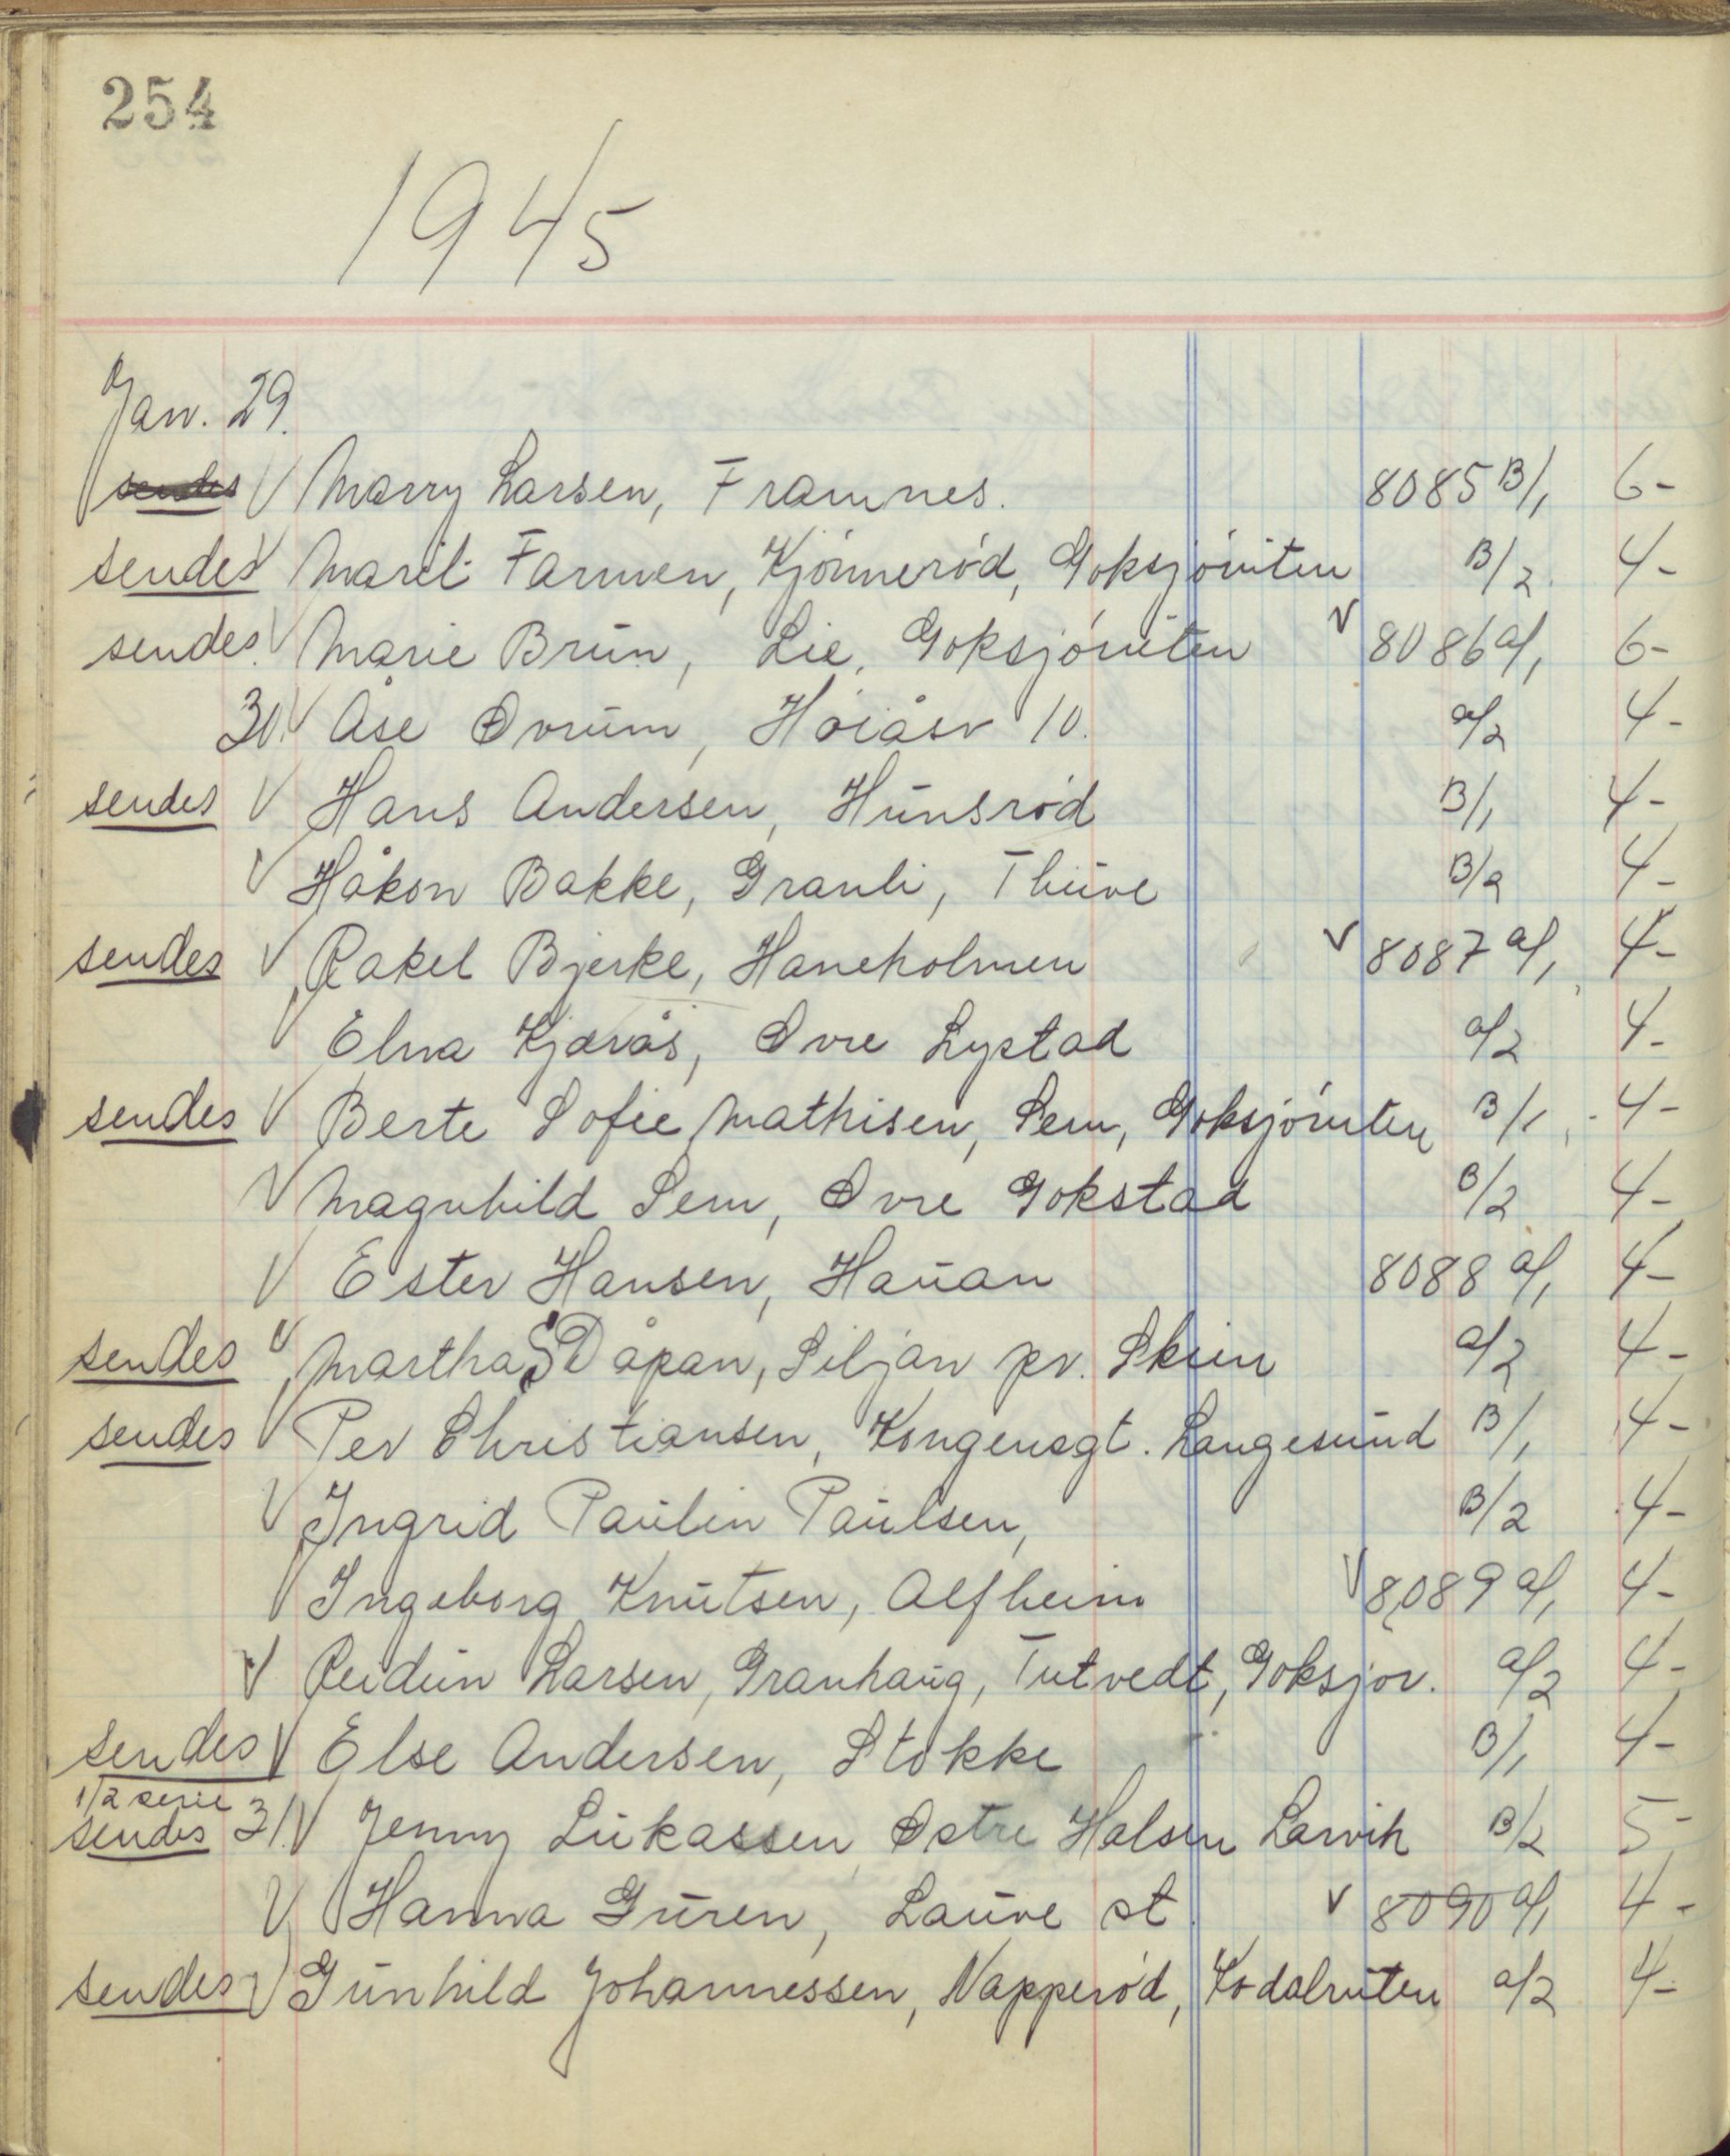 254
1945
Jan. 29.
sendes V Marry Larsen, Framnes. 8085 B/1 6-
sendes V Marit Farmen, Kjönneröd, Goksjöruten B/2 4-
sendes. V Marie Brun, Lie, Goksjöruten V 8086 a/1 6-
30. V Åse Øvrum, Höiåsv 10. a/2 4-
sendes V Hans Andersen, Hunsröd B/1 4-
V Håkon Bakke, Granli, Thuve B/2 4-
sendes V Rakel Bjerke, Haneholmen V 8087 a/1 4-
V Elna Kjærås, Øvre Lystad a/2 4-
sendes V Berte Sofie Mathisen, Sem, Goksjöruten B/1 4-
V Magnhild Sem, Øvre Gokstad B/2 4-
V Ester Hansen, Hauan 8088 a/1 4-
sendes V Martha S Dåpan, Siljan pr. Skien a/2 4-
sendes V Per Christiansen, Kongensgt. Langesund B/1 4-
V Ingrid Paulin Paulsen, B/2 4-
V Ingeborg Knutsen, Alfheim V 8089 a/1 4-
V Reidun Larsen, Granhaug, Tutvedt, Goksjör. a/2 4-
sendes V Else Andersen, Stokke B/1 4-
1/2 serie
sendes 31. V Jenny Lukassen, Østre Halsen Larvik B/2 5-
V Hanna Guren, Lauve st. V 8090 a/1 4-
sendes V Gunhild Johannessen, Napperöd, Kodalruten a/2 4-